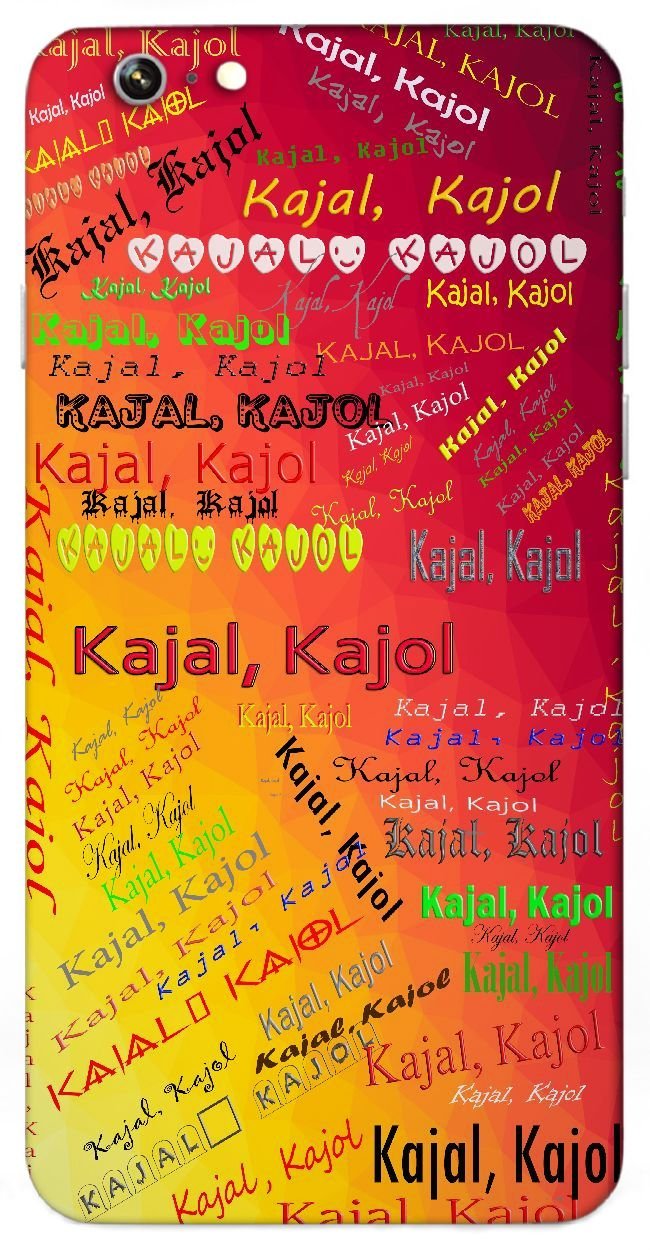 Kajal, Kajol
Kajal, Kajol
KAJAL, KAJOL
Kajal, Kajol
Kajal, Kajol
Kajal, Kajol
KAJAL▯ KAJOL
Kajal, Kajol
Kajal, Kajol
KAJAL, KAJOL
Kajal, Kajol
Kajal, Kajol
Kajal, Kajol
KAJAL, KAJOL
Kajal, Kajol
Kajal, Kajol
Kajal, Kajol
Kajal, Kajol
KAJAL, KAJOL
Kajal, Kajol
Kajal, Kajol
Kajal, Kajol
KAJAL, KAJOL
Kajal, Kajol
Kajal, Kajol
Kajal, Kajol
Kajal, Kajol
Kajal, Kajol
Kajal, Kajol
Kajal, Kajol
KAJAL, KAJOL
Kajal, Kajol
Kajal, Kajol
KAJAL, KAJOL
Kajal, Kajol
Kajal, Kajol
Kajal, Kajol
Kajal, Kajol
Kajal, Kajol
Kajal, Kajol
Kajal, Kajol
Kajal, Kajol
Kajal, Kajol
Kajal, Kajol
Kajal, Kajol
Kajal, Kajol
Kajal, Kajol
Kajal, Kajol
Kajal, Kajol
Kajal, Kajol
Kajal, Kajol
Kajal, Kajol
Kajal, Kajol
Kajal, Kajol
Kajal, Kajol
Kajal, Kajol
Kajal, Kajol
KAJAL▯ KAJOL
Kajal, Kajol
Kajal, Kajol
Kajal, Kajol
Kajal, Kajol
Kajal, Kajol
KAJAL▯ KAJOL
Kajal, Kajol
Kajal, Kajol
Kajal, Kajol